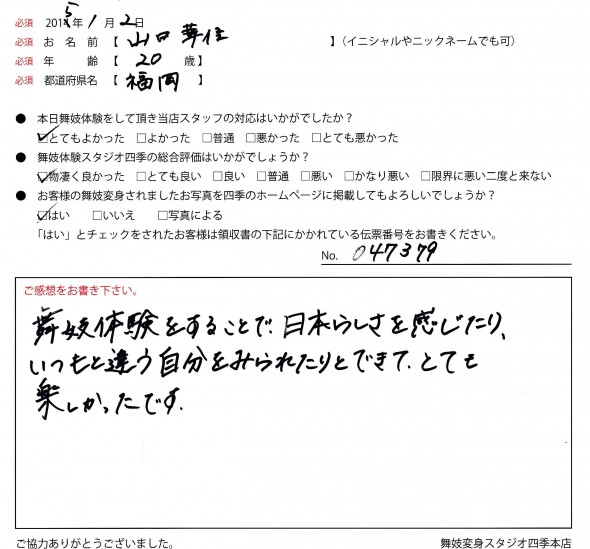 必須 2015年 1月 2日
必須 お名前【 山口 華佳 】(イニシャルやニックネームでも可)
必須 年齢【 20 歳】
必須 都道府県名【 福岡 】
● 本日舞妓体験をして頂き当店スタッフの対応はいかがでしたか?
☑とてもよかった □よかった □普通 □悪かった □とても悪かった
● 舞妓体験スタジオ四季の総合評価はいかがでしょうか?
☑物凄く良かった □とても良い □良い □普通 □悪い □かなり悪い □限界に悪い二度と来ない
● お客様の舞妓変身されましたお写真を四季のホームページに掲載してもよろしいでしょうか?
☑はい □いいえ □写真による
「はい」とチェックをされたお客様は領収書の下記にかかれている伝票番号をお書きください。
No. 047379
ご感想をお書き下さい。
舞妓体験をすることで、日本らしさを感じたり、
いつもと違う自分をみられたりとできて、とても
楽しかったです.
ご協力ありがとうございました。 舞妓変身スタジオ四季本店